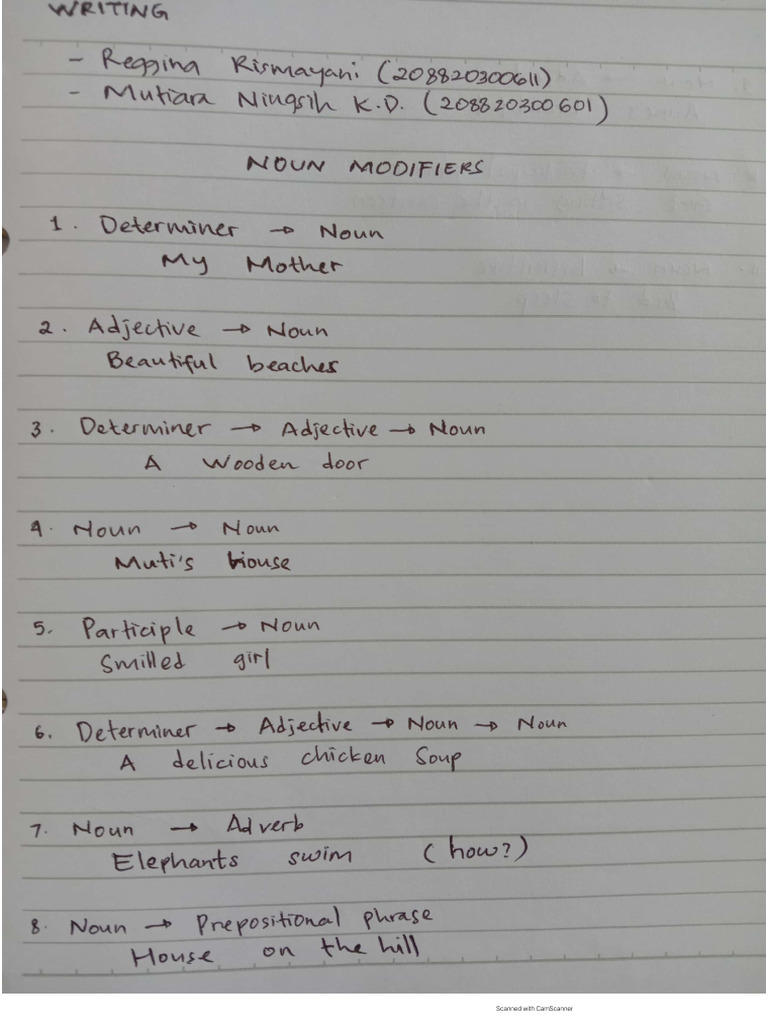 WRITING
- Reggina Rismayani (208820300611)
- Mutiara Ningsih K.D. (208820300601)
NOUN MODIFIERS
1. Determiner → Noun
My Mother
2. Adjective → Noun
Beautiful beaches
3. Determiner → Adjective → Noun
A Wooden door
4. Noun → Noun
Muti's House
5. Participle → Noun
Smilled girl
6. Determiner → Adjective → Noun → Noun
A delicious chicken Soup
7. Noun → Adverb
Elephants swim (how?)
8. Noun → Prepositional phrase
House on the hill
Scanned with CamScanner